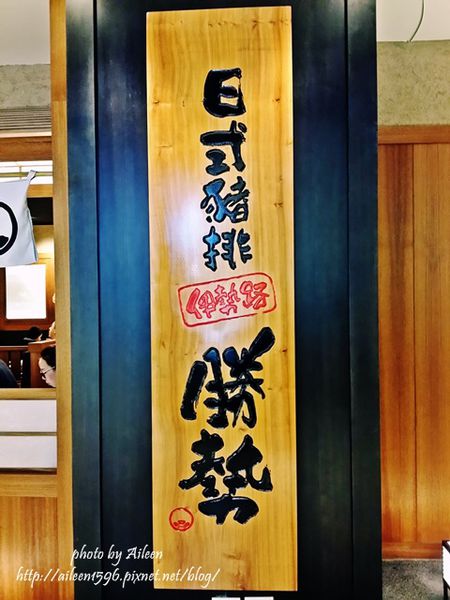 日式豬排
伊勢路
勝勢
photo by Aileen
http://aileen1596.pixnet.net/blog/